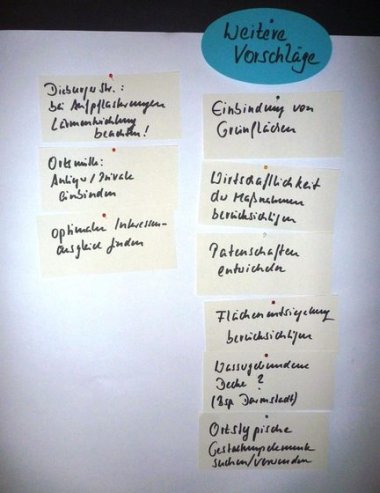 Weitere
Vorschläge
Dieburgerstr.:
bei Aufpflasterungen
Lärmentwicklung
beachten!
Ortsmitte:
Anlieger/Private
einbinden
optimalen Interessen-
ausgleich finden
Einbindung von
Grünflächen
Wirtschaftlichkeit
der Maßnahmen
berücksichtigen
Patenschaften
entwickeln
Flächenentsiegelung
berücksichtigen
Wassergebundene
Decke?
(Bsp. Darmstadt)
Ortstypische
Gestaltungselemente
suchen/verwenden